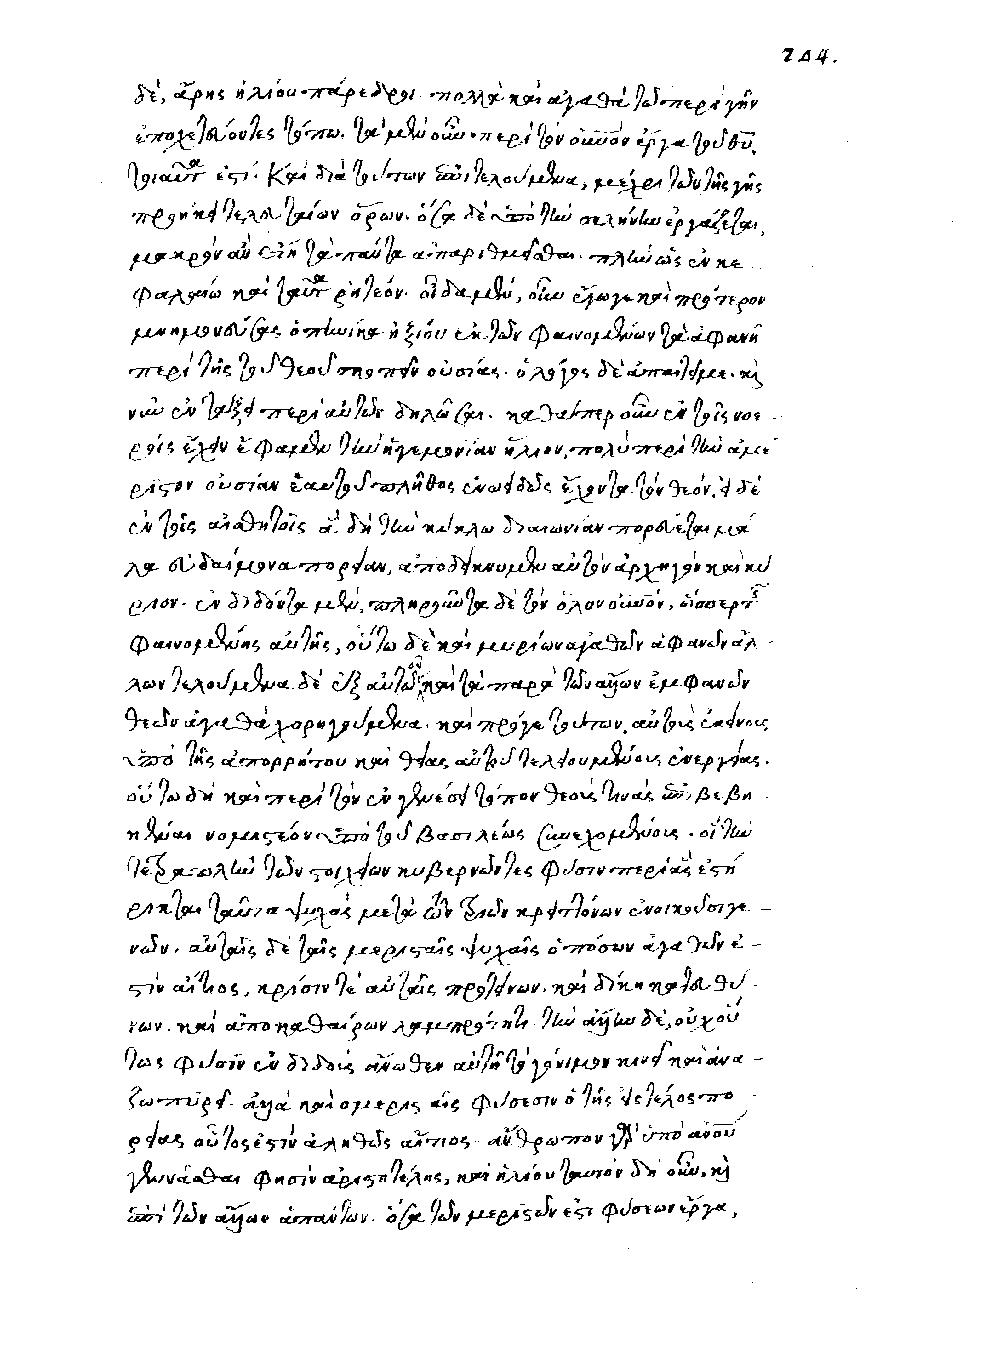 244.
δὲ, ἄρης ἡλίου πάρεδροι πολλὰ καὶ ἀγαθὰ τῷ περὶ γῆν
ἐποχετεύοντες τόπῳ. τὰ μὲν οὖν περὶ τὸν οὐνὸν ἔργα τοῦ θυ̅,
τοιαῦτα ἐστί. Καὶ διὰ τούτων ἐπιτελούμενα, μέχρι τῶν τῆς γῆς
προήκει τελευταίων ὅρων. ὅσα δὲ ὑπὸ τὴν σελήνην ἐργάζεται,
μακρὸν ἂν εἴη τὰ πάντα ἀπαριθμεῖσθαι. πλὴν ὡς ἐν κε
φαλαίῳ καὶ ταῦτα ῥητέον. οἶδα μὲν, οὖν ἔγωγε καὶ πρότερον
μνημονεύσας ὁπηνίκα ἠξίουν ἐκ τῶν φαινομένων τὰ ἀφανῆ
περὶ τῆς τοῦ θεοῦ σκοπεῖν οὐσίας. ὁ λόγος δὲ ἀπαιτεῖ με. κὶ
νῦν ἐν τάξει περὶ αὐτῶν δηλῶσαι. καθάπερ οὖν ἐν τοῖς νοε
ροῖς ἔχειν ἔφαμεν τὴν ἡγεμονίαν ἥλιον, πολὺ περὶ τὴν ἀμέ
ριστον οὐσίαν ἑαυτοῦ πλῆθος ἑνοειδῶς ἔχοντα τῶν θεῶν. ἔτι δὲ
ἐν τοῖς αἰσθητοῖς ἃ δὴ τὴν κύκλῳ διαιωνίαν πορεύεται μά
λα εὐδαίμονα πορείαν, ἀποδείκνυμεν αὐτὸν ἀρχηγὸν καὶ κύ
ριον. ἐνδιδόντα μὲν, πληροῦντα δὲ τὸν ὅλον οὐνὸν, ὥσπερ τῆς
φαινομένης αὐγῆς, οὕτω δὲ καὶ μυρίων ἀγαθῶν ἀφανῶν ἄλ
λων τελούμενα δὲ ἐξ αὐτοῦ καὶ τὰ παρὰ τῶν ἄλλων ἐμφανῶν
θεῶν ἀγαθὰ χορηγούμενα. καὶ πρό γε τούτων, αὐτοὺς ἐκείνους
ὑπὸ τῆς ἀπορρήτου καὶ θείας αὐτοῦ τελειουμένους ἐνεργείας.
οὕτω δὴ καὶ περὶ τὸν ἐν γενέσει τόπον θεούς τινας ἐπιβεβη
κέναι νομιστέον ὑπὸ τοῦ βασιλέως συνεχομένους. οἳ τὴν
τετραπλῆν τῶν στοιχείων κυβερνῶντες φύσιν περὶ ἃς ἐστή
ρικται ταῦτα ψυχὰς μετὰ τῶν τριῶν κρειττόνων ἐνοικοῦσι γε
νῶν. αὐταῖς δὲ ταῖς μερισταῖς ψυχαῖς ὁπόσων ἀγαθῶν ἐ
στὶν αἴτιος, κρίσιν τε αὐταῖς προτείνων. καὶ δίκῃ κατευθύ
νων. καὶ ἀποκαθαίρων λαμπρότητι. τὴν ἄλλην δὲ, οὐχ οὕ
τως φύσιν ἐνδιδοὺς ἄνωθεν αὐτῇ τὸ γόνιμον κινεῖ καὶ ἀνα
ζωπυρεῖ. ἀλλὰ καὶ μερισταῖς φύσεσιν ὁ τῆς εἰς τέλος πο
ρείας οὗτός ἐστιν ἀληθῶς αἴτιος. ἄνθρωπον γὰρ ὑπὸ ἀνου̅
γεννᾶσθαι φησὶν ἀριστοτέλης, καὶ ἡλίου ταυτὸν δὴ οὖν, κὶ
ἐπὶ τῶν ἄλλων ἁπάντων. ὅσα τῶν μεριστῶν ἐστι φύσεων ἔργα,